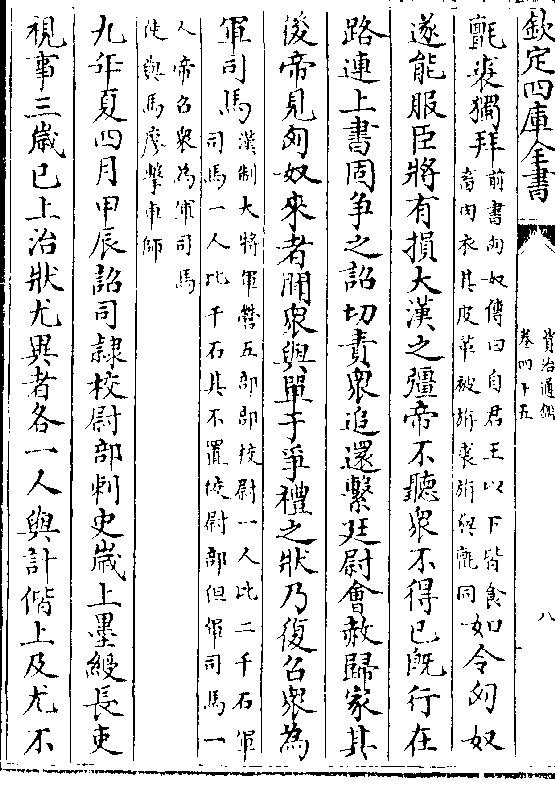 欽定四庫全書
資治通鑑
卷四十五
八
氈裘獨拜
前書匈奴傳曰自君王以下皆食
畜肉衣其皮革被旃裘旃與氈同
如令匈奴
遂能服臣將有損大漢之彊帝不聽衆不得已既行在
路連上書固爭之詔切責衆追還繫廷尉會赦歸家其
後帝見匈奴來者聞衆與單于爭禮之狀乃復召衆為
軍司馬
漢制大將軍營五部部校尉一人比二千石軍
司馬一人比千石其不置校尉部但軍司馬一
人帝召衆為軍司馬
使與馬廖擊車師
九年夏四月甲辰詔司隷校尉部刺史歲上墨綬長吏
視事三歲已上治狀尤異者各一人與計偕上及尤不